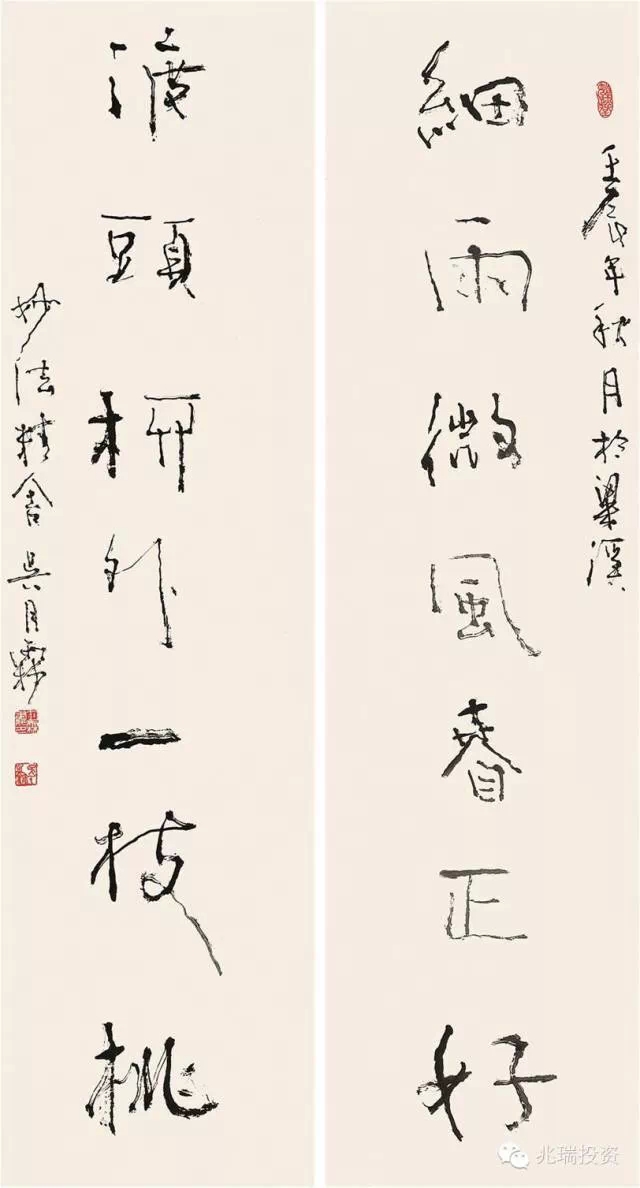 壬辰年秋月於梁溪
細雨微風春正好
渡頭柳外一枝桃
妙法精舍吳月霖
兆瑞投资